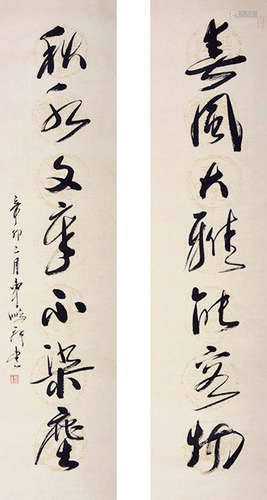 春風大雅能容物
秋水文章不染塵
辛卯二月